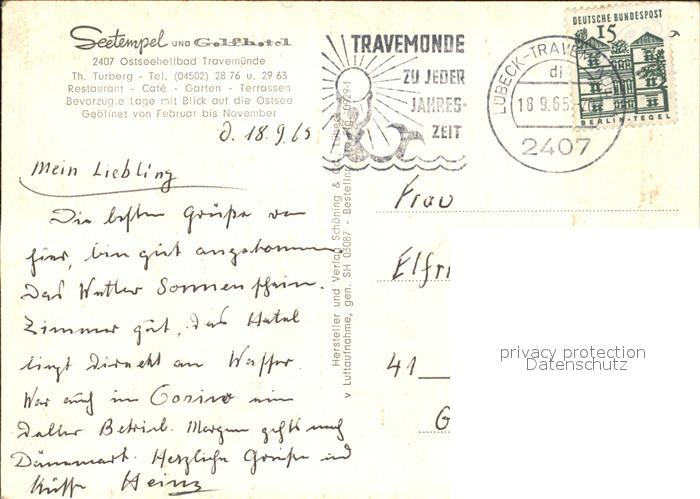 Seetempel UND Golfhotel
2407 Ostseeheilbad Travemünde
Th. Turberg - Tel. (04502) 28 76 u. 29 63
Restaurant - Café - Garten - Terrassen
Bevorzugte Lage mit Blick auf die Ostsee
Geöfinet von Februar bis November
d. 18.9.65
Mein Liebling
Die besten Grüße von
hier, bin gut angekommen
Das Wetter Sonnenschein.
Zimmer gut, das Hotel
liegt direckt am Wasser.
War auch im Casino ein
doller Betrieb. Morgen gehts nach
Dänemark. Herzliche Grüße und
Küsse Heinz
TRAVEMÜNDE
ZU JEDER
JAHRES-
ZEIT
LÜBECK-TRAVEM
di
18.9.65
2407
DEUTSCHE BUNDESPOST
15
BERLIN-TEGEL
Hersteller und Verlag Schöning &
v Luftaufnahme, gen. SH 03087 - Bestelln
Frau
Elfr
41
G
privacy protection
Datenschutz